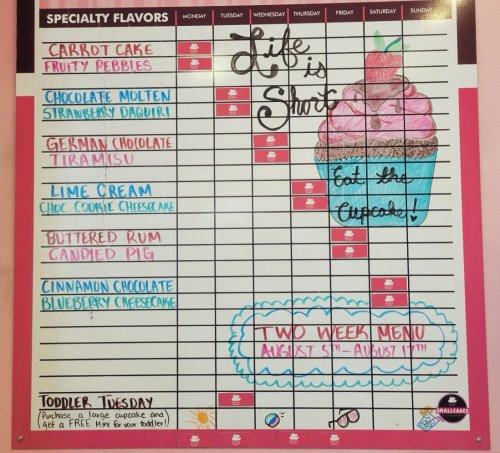 SPECIALTY FLAVORS MONDAY TUESDAY WEDNESDAY THURSDAY FRIDAY SATURDAY SUNDAY
CARROT CAKE
FRUITY PEBBLES
Life
is
Short
CHOCOLATE MOLTEN
STRAWBERRY DAQUIRI
GERMAN CHOCOLATE
TIRAMISU
Eat the
Cupcake!
LIME CREAM
CHOC. COOKIE CHEESECAKE
BUTTERED RUM
CANDIED PIG
CINNAMON CHOCOLATE
BLUEBERRY CHEESECAKE
TWO WEEK MENU
AUGUST 5TH-AUGUST 17TH
TODDLER TUESDAY
(Purchase a large cupcake and
get a FREE Mini for your toddler!)
SMALLCAKES